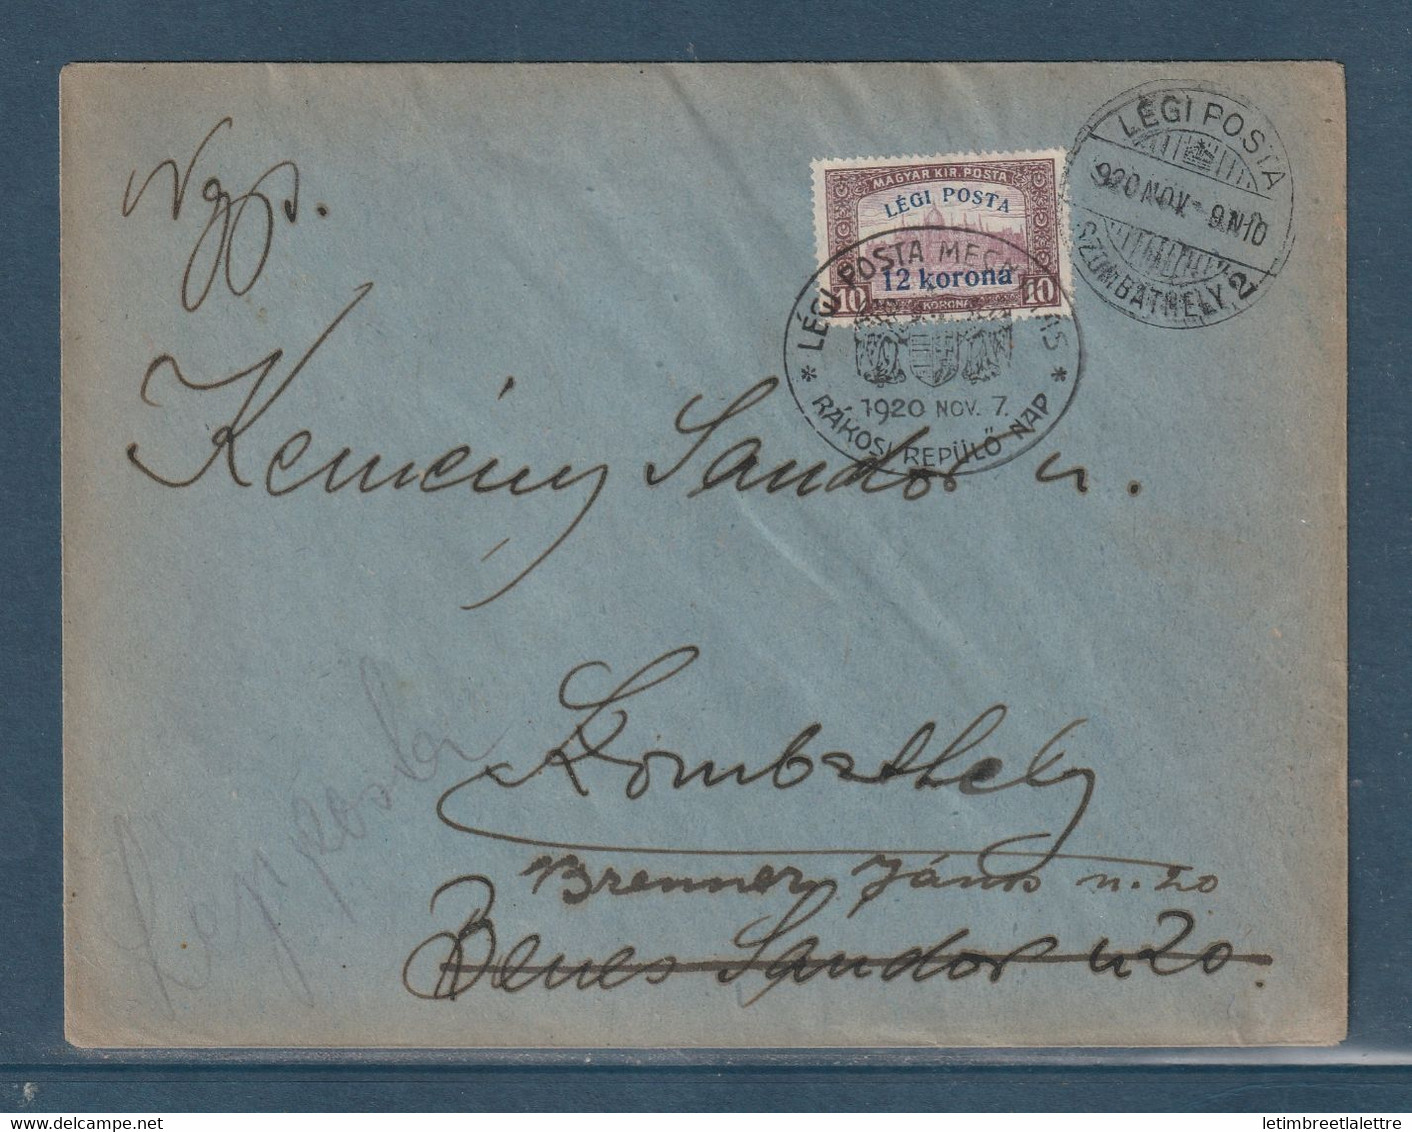 Ngs.
MAGYAR KIR. POSTA
LÉGI POSTA
12 korona
10 KORONA 10
LÉGI POSTA
920 NOV. 9. N10
SZOMBATHELY 2
LÉGI POSTA MEG
* *
1920 NOV. 7.
RÁKOSI REPÜLŐ NAP
Kemény Sandor u.
Légi posta
Szombathely
Brenner János u. 20
Benes Sandor u 20.
letimbreetlalettre.com